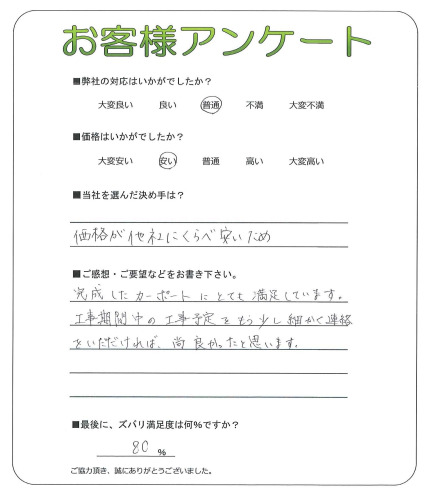 お客様アンケート
■弊社の対応はいかがでしたか？
大変良い 良い 普通 不満 大変不満
■価格はいかがでしたか？
大変安い 安い 普通 高い 大変高い
■当社を選んだ決め手は？
価格が他社にくらべ安いため
■ご感想・ご要望などをお書き下さい。
完成したカーポートにとても満足しています。
工事期間中の工事予定をもう少し細かく連絡
をいただければ、尚良かったと思います。
■最後に、ズバリ満足度は何％ですか？
80 %
ご協力頂き、誠にありがとうございました。